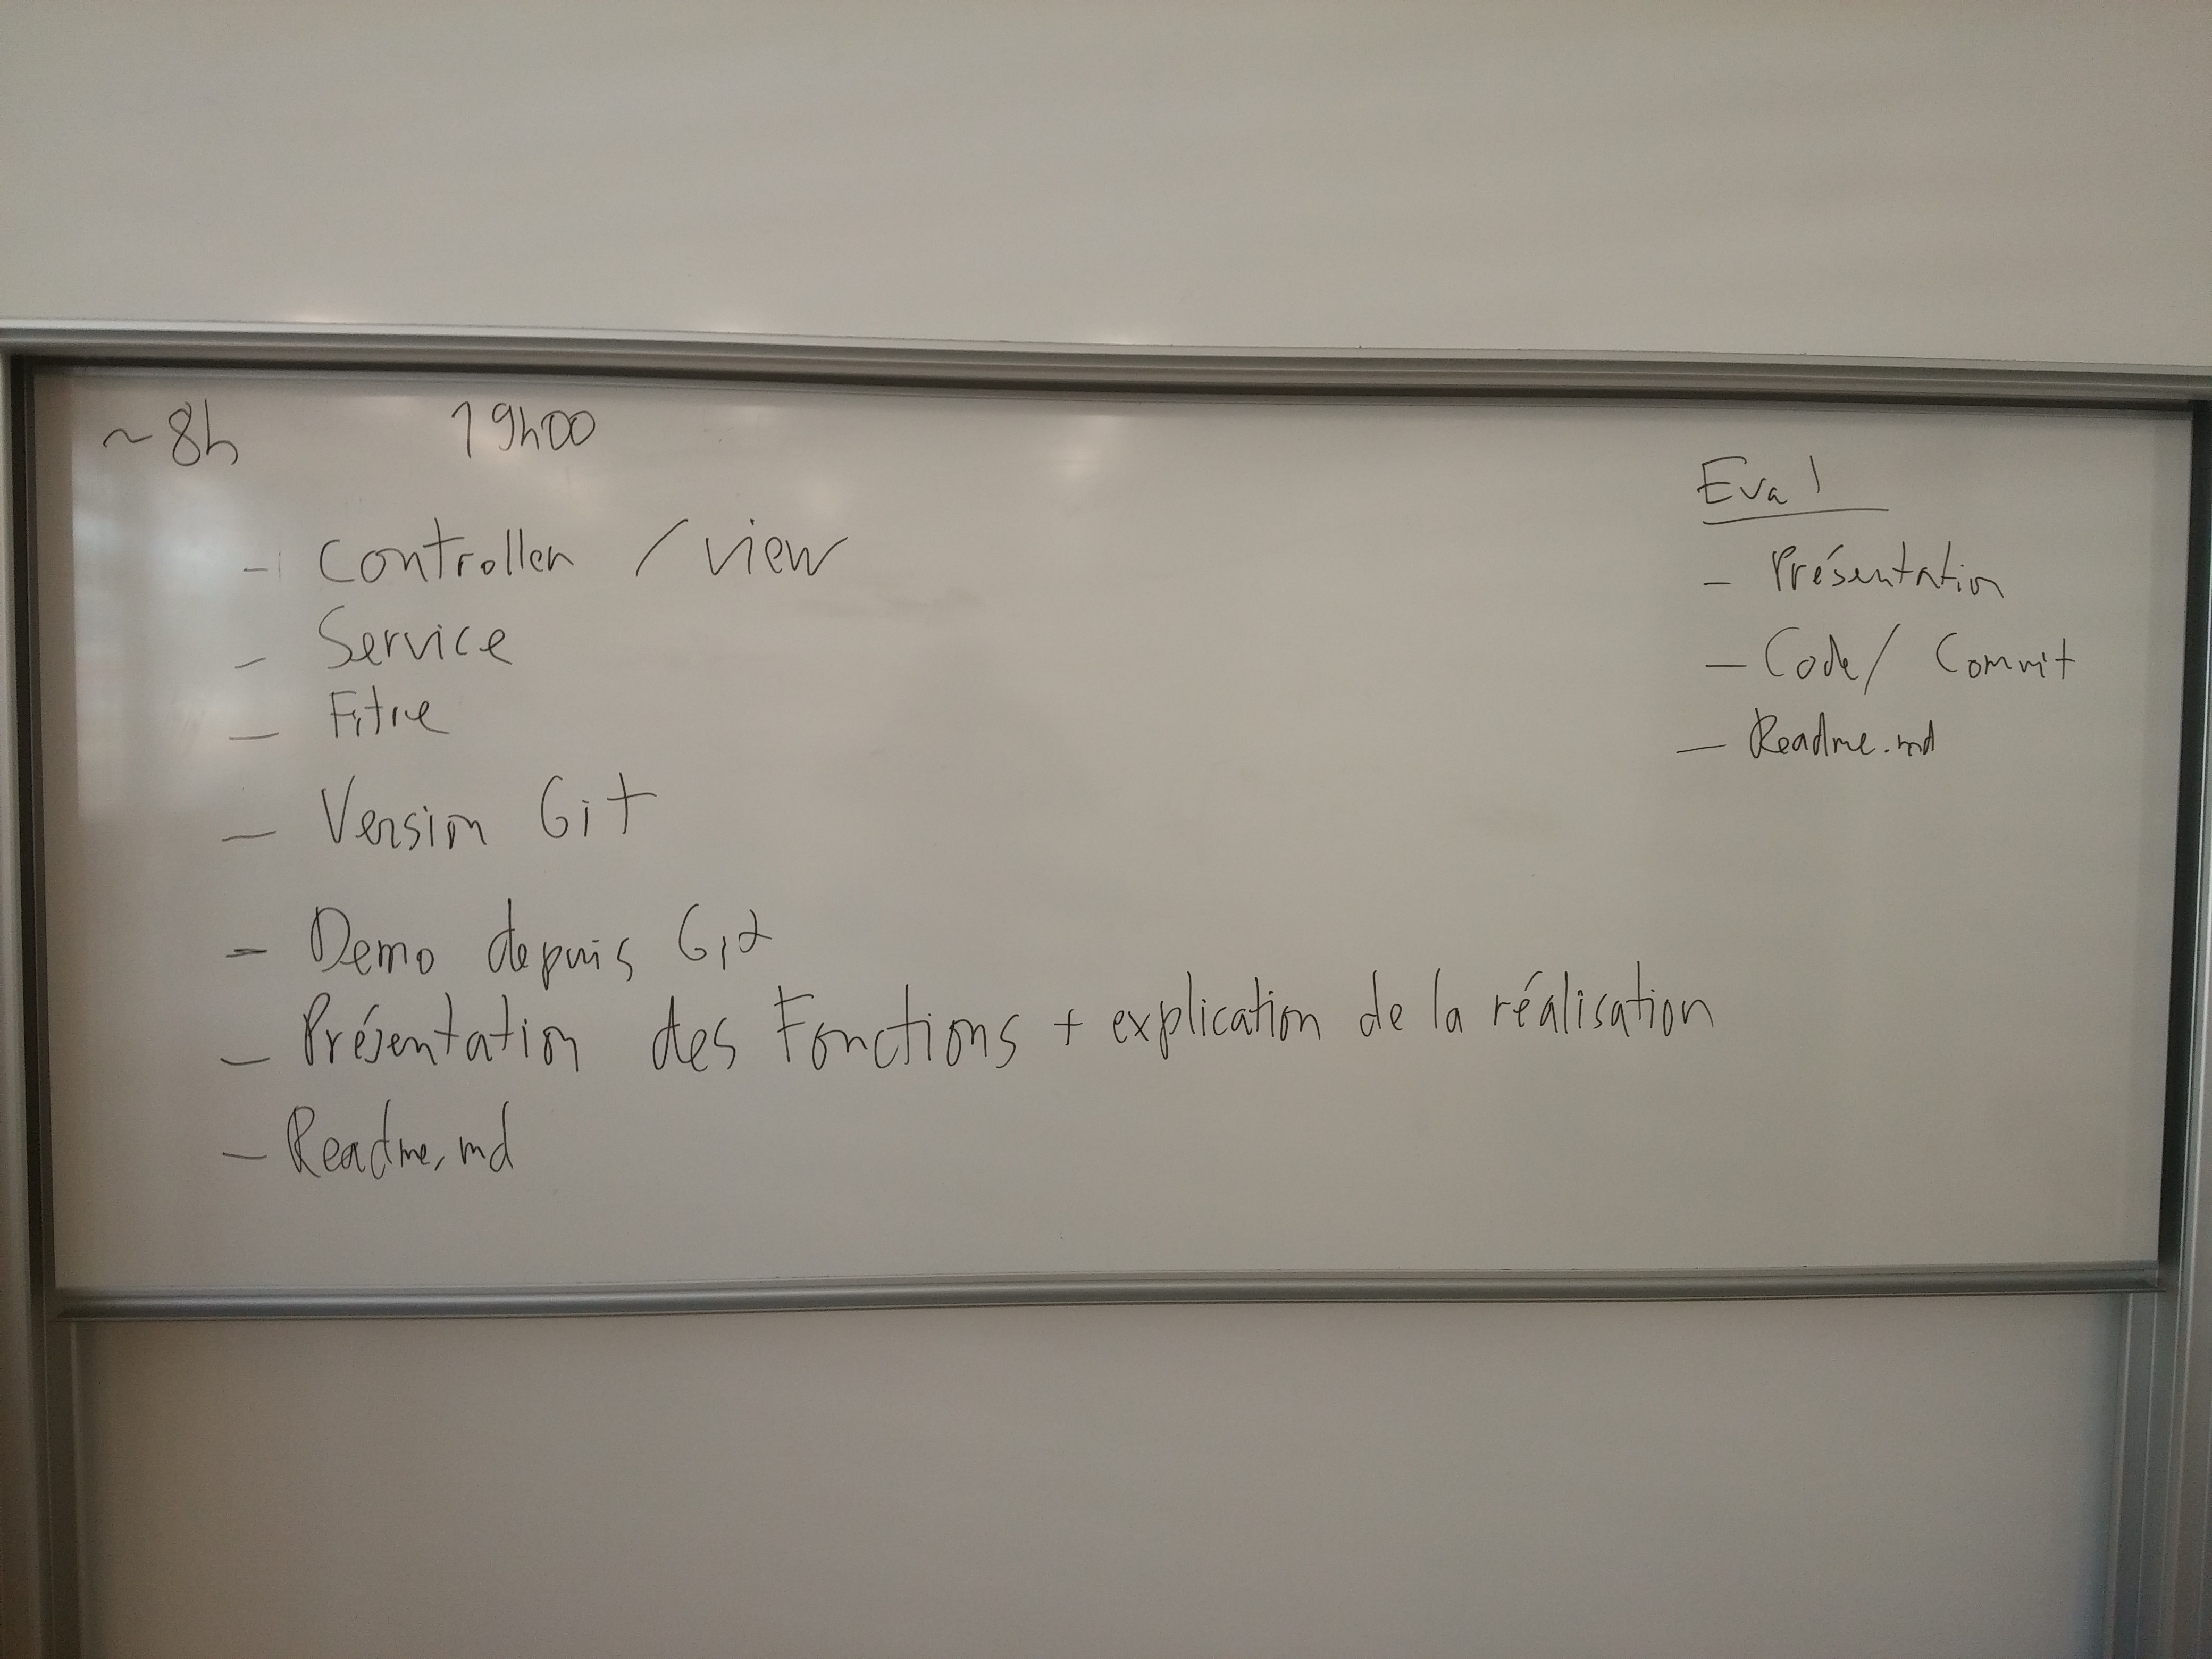 ~8h 19h00
- Controller / view
- Service
- Fitre
- Version Git
- Demo depuis Git
- Présentation des Fonctions + explication de la réalisation
- Readme.md
Eval
- Présentation
- Code / Commit
- Readme.md